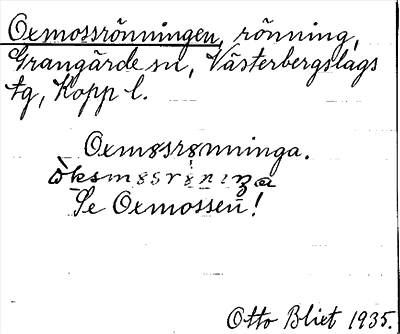 Oxmossrönningen, rönning,
Grangärde sn, Västerbergslags
tg, Kopp l.
Oxmossrønninga.
Se Oxmossen!
Otto Blixt 1935.